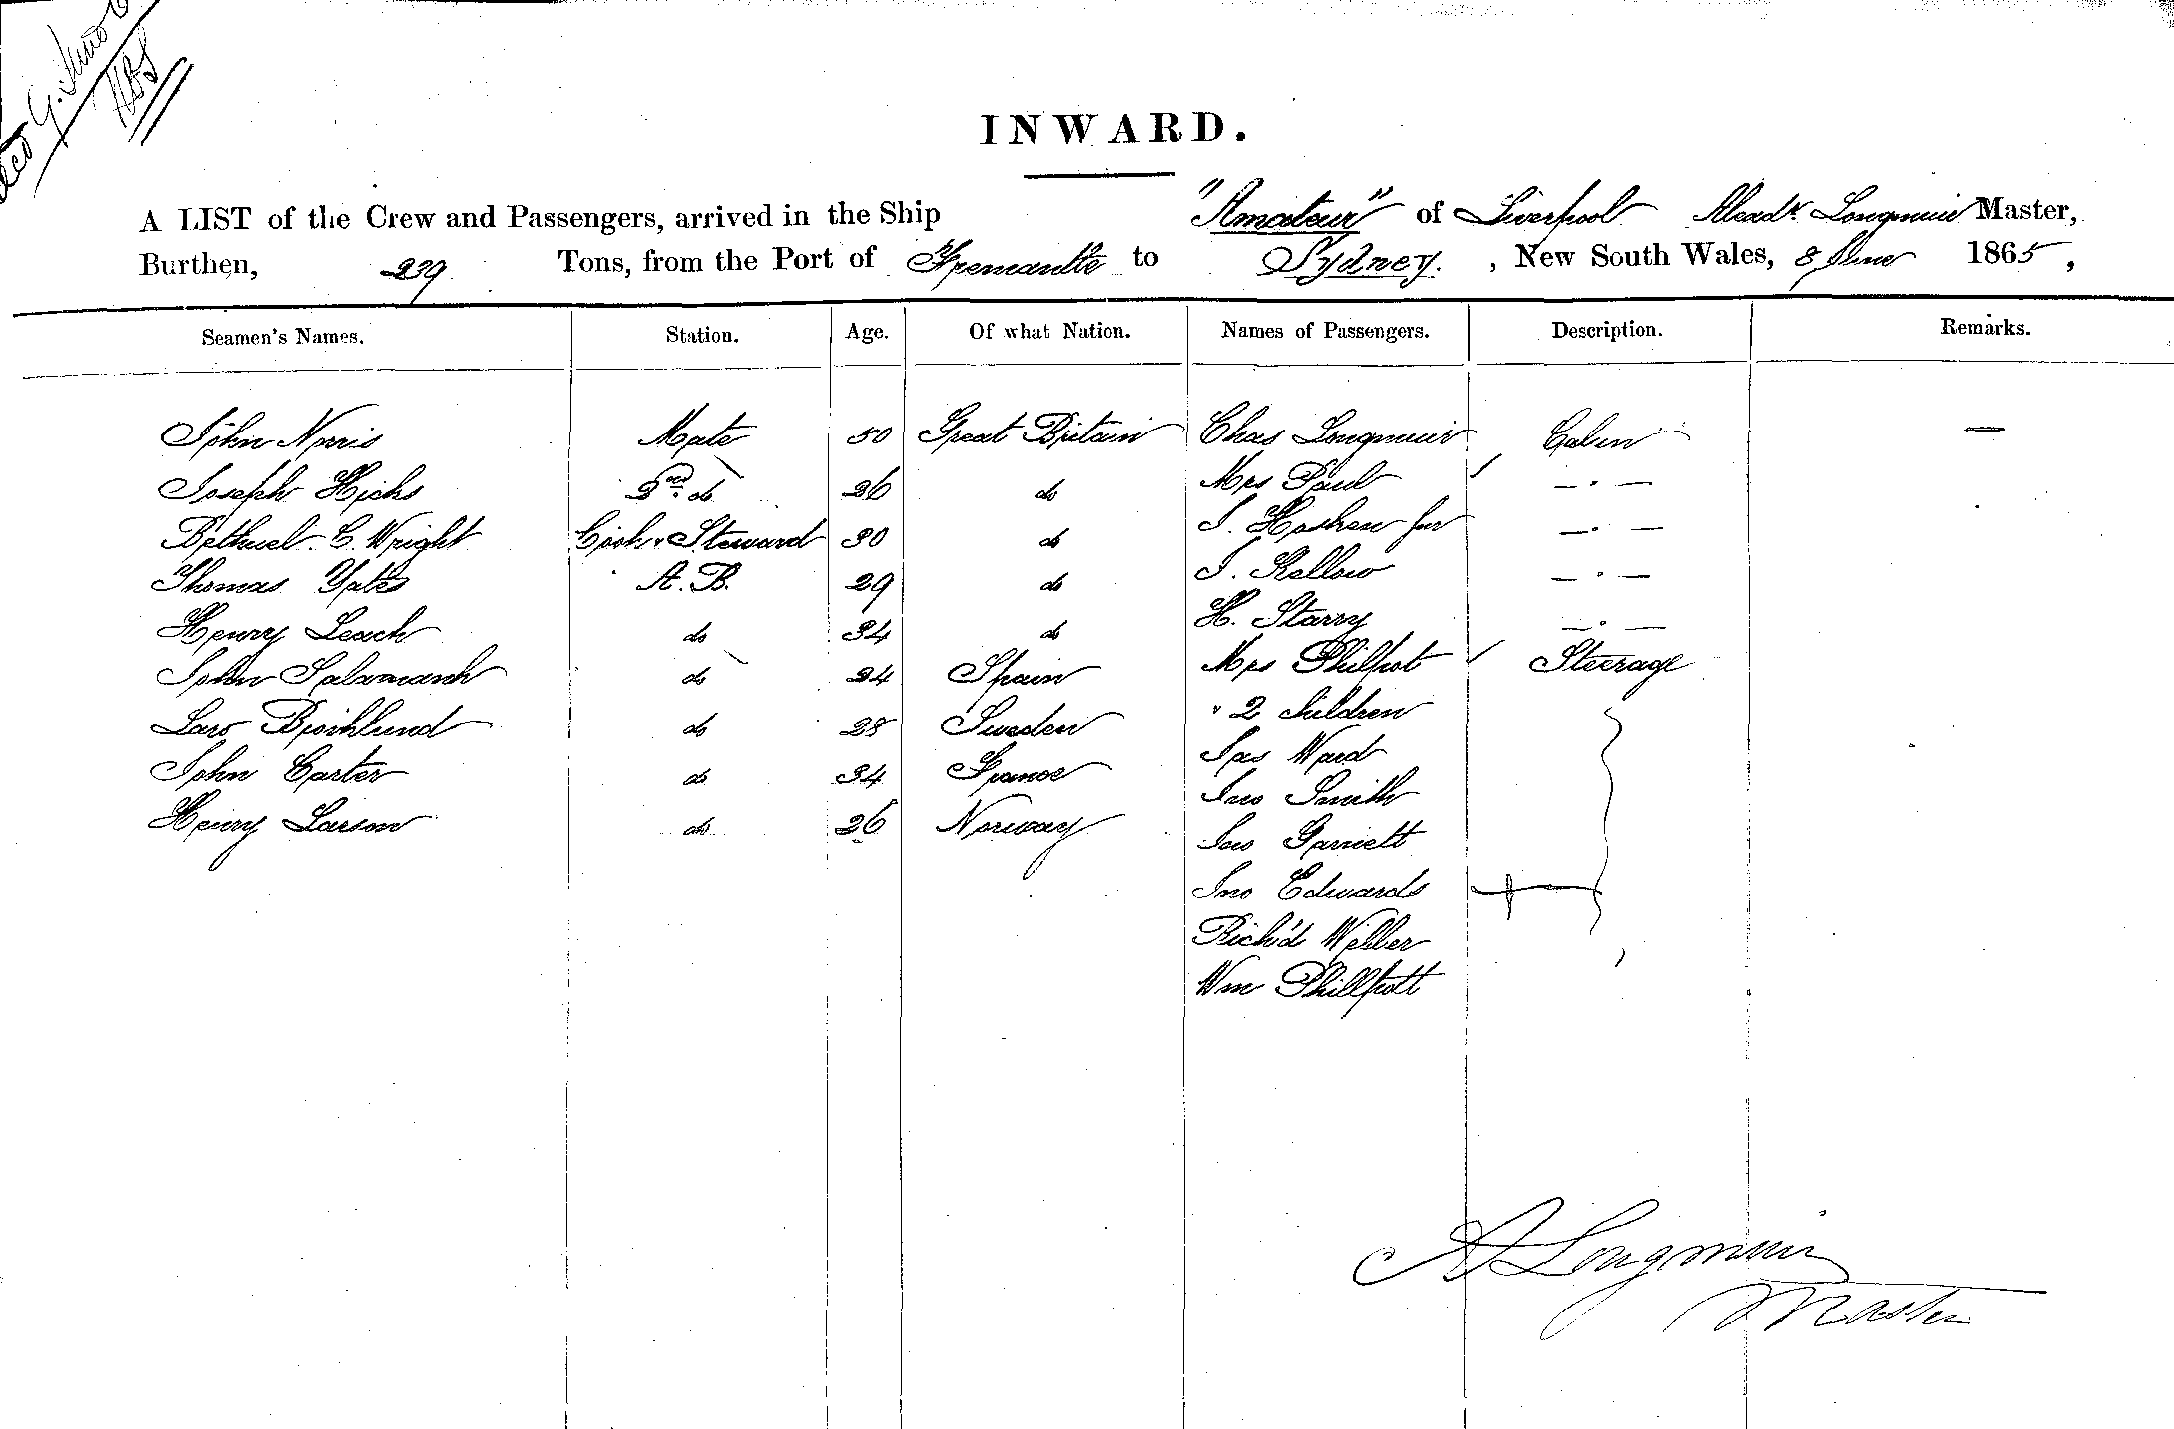 INWARD.
A LIST of the Crew and Passengers, arrived in the Ship "Amateur" of Liverpool Alexdr. Longmuir Master,
Burthen, 239 Tons, from the Port of Fremantle to Sydney. , New South Wales, 8 June 1865,
Seamen's Names. Station. Age. Of what Nation. Names of Passengers. Description. Remarks.
John Norris Mate 50 Great Britain Chas Longmuir Cabin —
Joseph Hicks 2nd. do 26 do Mrs Paul — . —
Bethuel. C. Wright Cook & Steward 30 do — . —
Thomas Yates A. B. 29 do — . —
Henry Leach do 34 do H. Starry — . —
John do 24 Spain Mrs Philpot Steerage
Lars do 28 Sweden " 2 children
John Carter do 34 France Jas Ward
Henry Larson do 26 Norway Jno Smith
Jno Garnett
Jno Edwards
Rich'd
Wm Phillpott
A Longmuir
Master